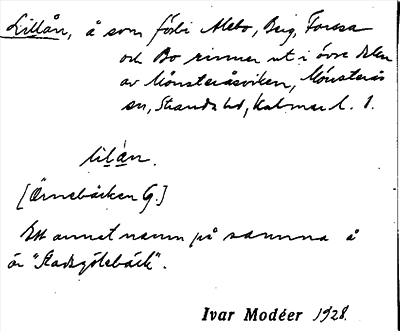 Lillån, å som förbi Alebo, Berg, Forsa
och Bo rinner ut i övre delen
av Mönsteråsviken, Mönsterås
sn, Stranda hd, Kalmar l. 1.
lilán.
[Örnebäcken G.]
Ett annat namn på samma å
är "Stadsgölebäck".
Ivar Modéer 1928.